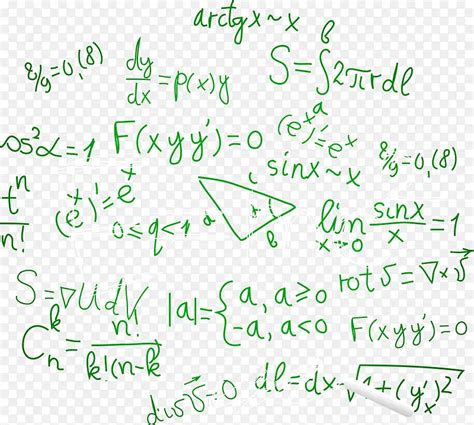 arctgx~x
8/9=0,(8)
dy/dx=p(x)y
S=∫2πrdl
b
a
os²α=1
F(xyy')=0
(e^x)'=e^x
sinx~x
8/9=0,(8)
t^n/n!
(e^x)'=e^x
0≤q<1
a
c
b
lim x→0 sinx/x=1
S=▽UdV
|a|={a, a≥0
-a, a<0
rot v⃗=▽x v⃗
C_n^k=n!/k!(n-k
F(xyy')=0
div v⃗=0
dl=dx √1+(y'x)²